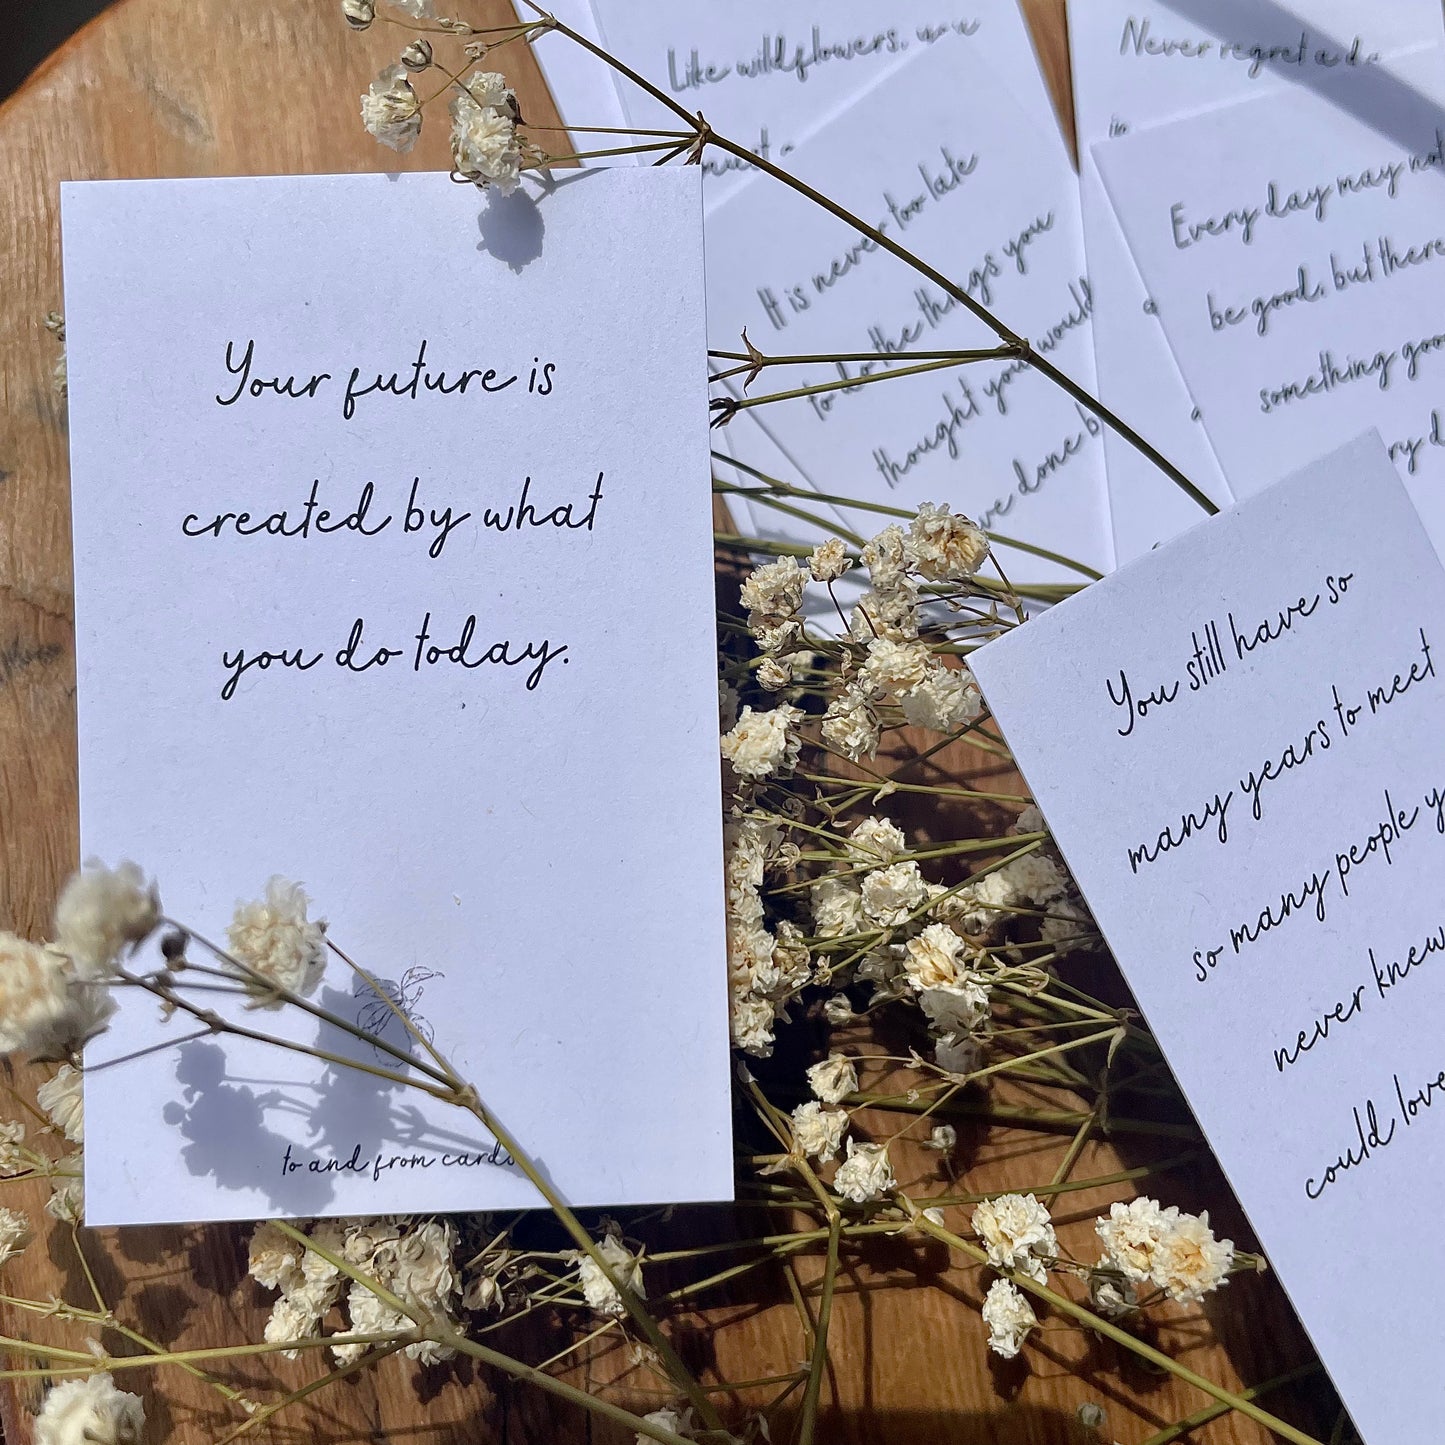 Your future is
created by what
you do today.
to and from cards
Like wildflowers,
It is never too late
to do the things you
thought you would
done
Never regret a
Every day may not
be good, but there
something
You still have so
many years to meet
so many people
never knew
could love